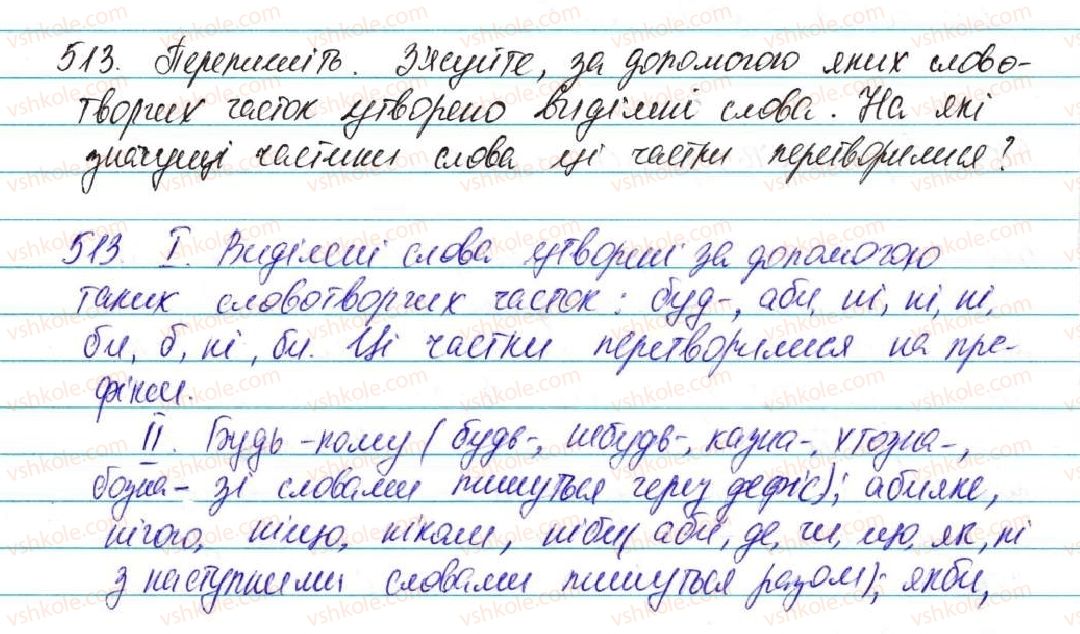 513. Перепишіть. З'ясуйте, за допомогою яких слово-
творчих часток утворено виділені слова. На які
значущі частини слова ці частки перетворилися?
513. I. Виділені слова утворені за допомогою
таких словотворчих часток: буд-, аби, ні, ні, ні,
би, б, ні, би. Ці частки перетворилися на пре-
фікси.
II. Будь-кому (будь-, небудь-, казна-, хтозна-,
бозна- зі словами пишуться через дефіс); абияке,
нічого, ніщо, ніколи, ніби( аби, де, чи, що, як, ні
з наступними словами пишуться разом); якби,
vshkole.com